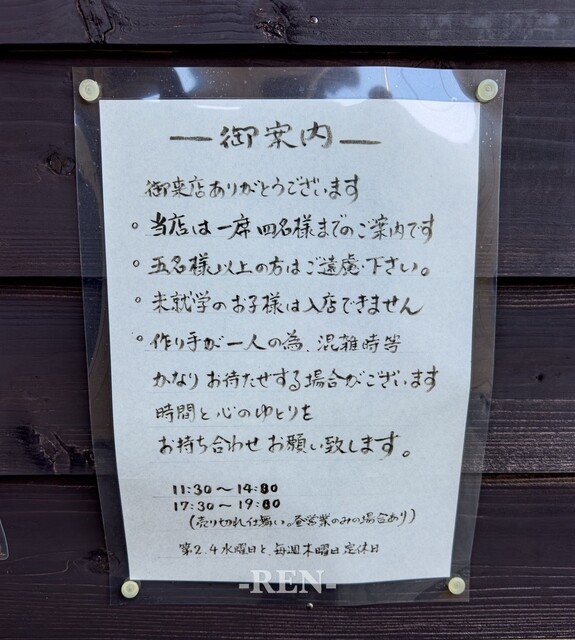 ―御案内―
御来店ありがとうございます
。当店は一席四名様までのご案内です
。五名様以上の方はご遠慮下さい。
。未就学のお子様は入店できません
。作り手が一人の為、混雑時等
かなりお待たせする場合がございます
時間と心のゆとりを
お持ち合わせお願い致します。
11:30～14:00
17:30～19:00
(売り切れ仕舞い。昼営業のみの場合あり)
第2.4水曜日と、毎週木曜日定休日
-REN-